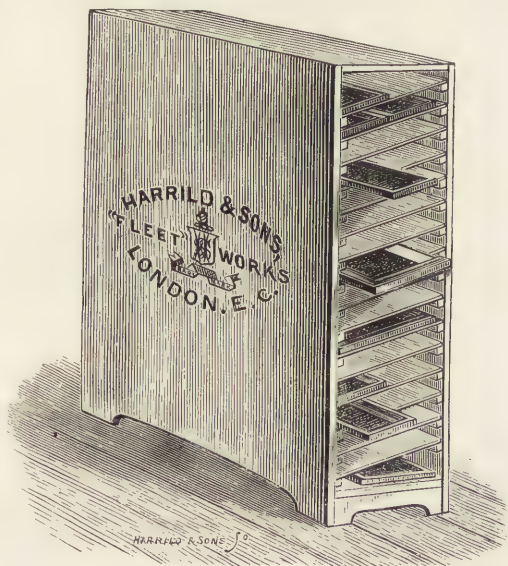 HARRILD & SONS,
"FLEET" WORKS
LONDON. E. C.
HARRILD & SONS Sc